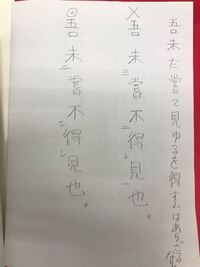 吾未だ嘗て見ゆるを得ずんばあらざる也
×吾未三嘗不二得レ見一也。
◎吾未二嘗不一レ得レ見也。